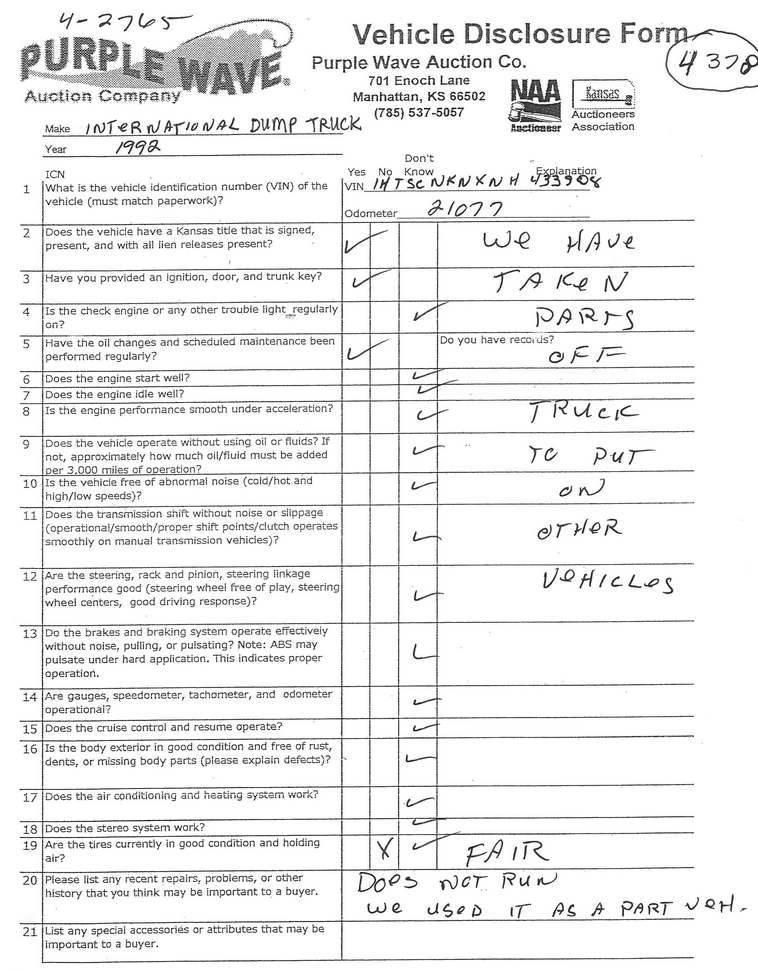 4-2765
PURPLE WAVE.
Auction Company
Vehicle Disclosure Form
4378
Purple Wave Auction Co.
701 Enoch Lane
Manhattan, KS 66502
(785) 537-5057
NAA
Auctioneer
Kansas
Auctioneers
Association
Make INTERNATIONAL DUMP TRUCK
Year 1992
ICN
Yes No Don't Know Explanation
1 What is the vehicle identification number (VIN) of the
vehicle (must match paperwork)?
VIN 1HTSCNKNXNH433908
Odometer 21077
2 Does the vehicle have a Kansas title that is signed,
present, and with all lien releases present?
WE HAVE
3 Have you provided an ignition, door, and trunk key?
TAKEN
4 Is the check engine or any other trouble light regularly
on?
PARTS
5 Have the oil changes and scheduled maintenance been
performed regularly?
Do you have records?
OFF
6 Does the engine start well?
7 Does the engine idle well?
8 Is the engine performance smooth under acceleration?
TRUCK
9 Does the vehicle operate without using oil or fluids? If
not, approximately how much oil/fluid must be added
per 3,000 miles of operation?
TO PUT
10 Is the vehicle free of abnormal noise (cold/hot and
high/low speeds)?
ON
11 Does the transmission shift without noise or slippage
(operational/smooth/proper shift points/clutch operates
smoothly on manual transmission vehicles)?
OTHER
12 Are the steering, rack and pinion, steering linkage
performance good (steering wheel free of play, steering
wheel centers, good driving response)?
VEHICLES
13 Do the brakes and braking system operate effectively
without noise, pulling, or pulsating? Note: ABS may
pulsate under hard application. This indicates proper
operation.
14 Are gauges, speedometer, tachometer, and odometer
operational?
15 Does the cruise control and resume operate?
16 Is the body exterior in good condition and free of rust,
dents, or missing body parts (please explain defects)?
17 Does the air conditioning and heating system work?
18 Does the stereo system work?
19 Are the tires currently in good condition and holding
air?
X
FAIR
20 Please list any recent repairs, problems, or other
history that you think may be important to a buyer.
DOES NOT RUN
WE USED IT AS A PART VEH.
21 List any special accessories or attributes that may be
important to a buyer.